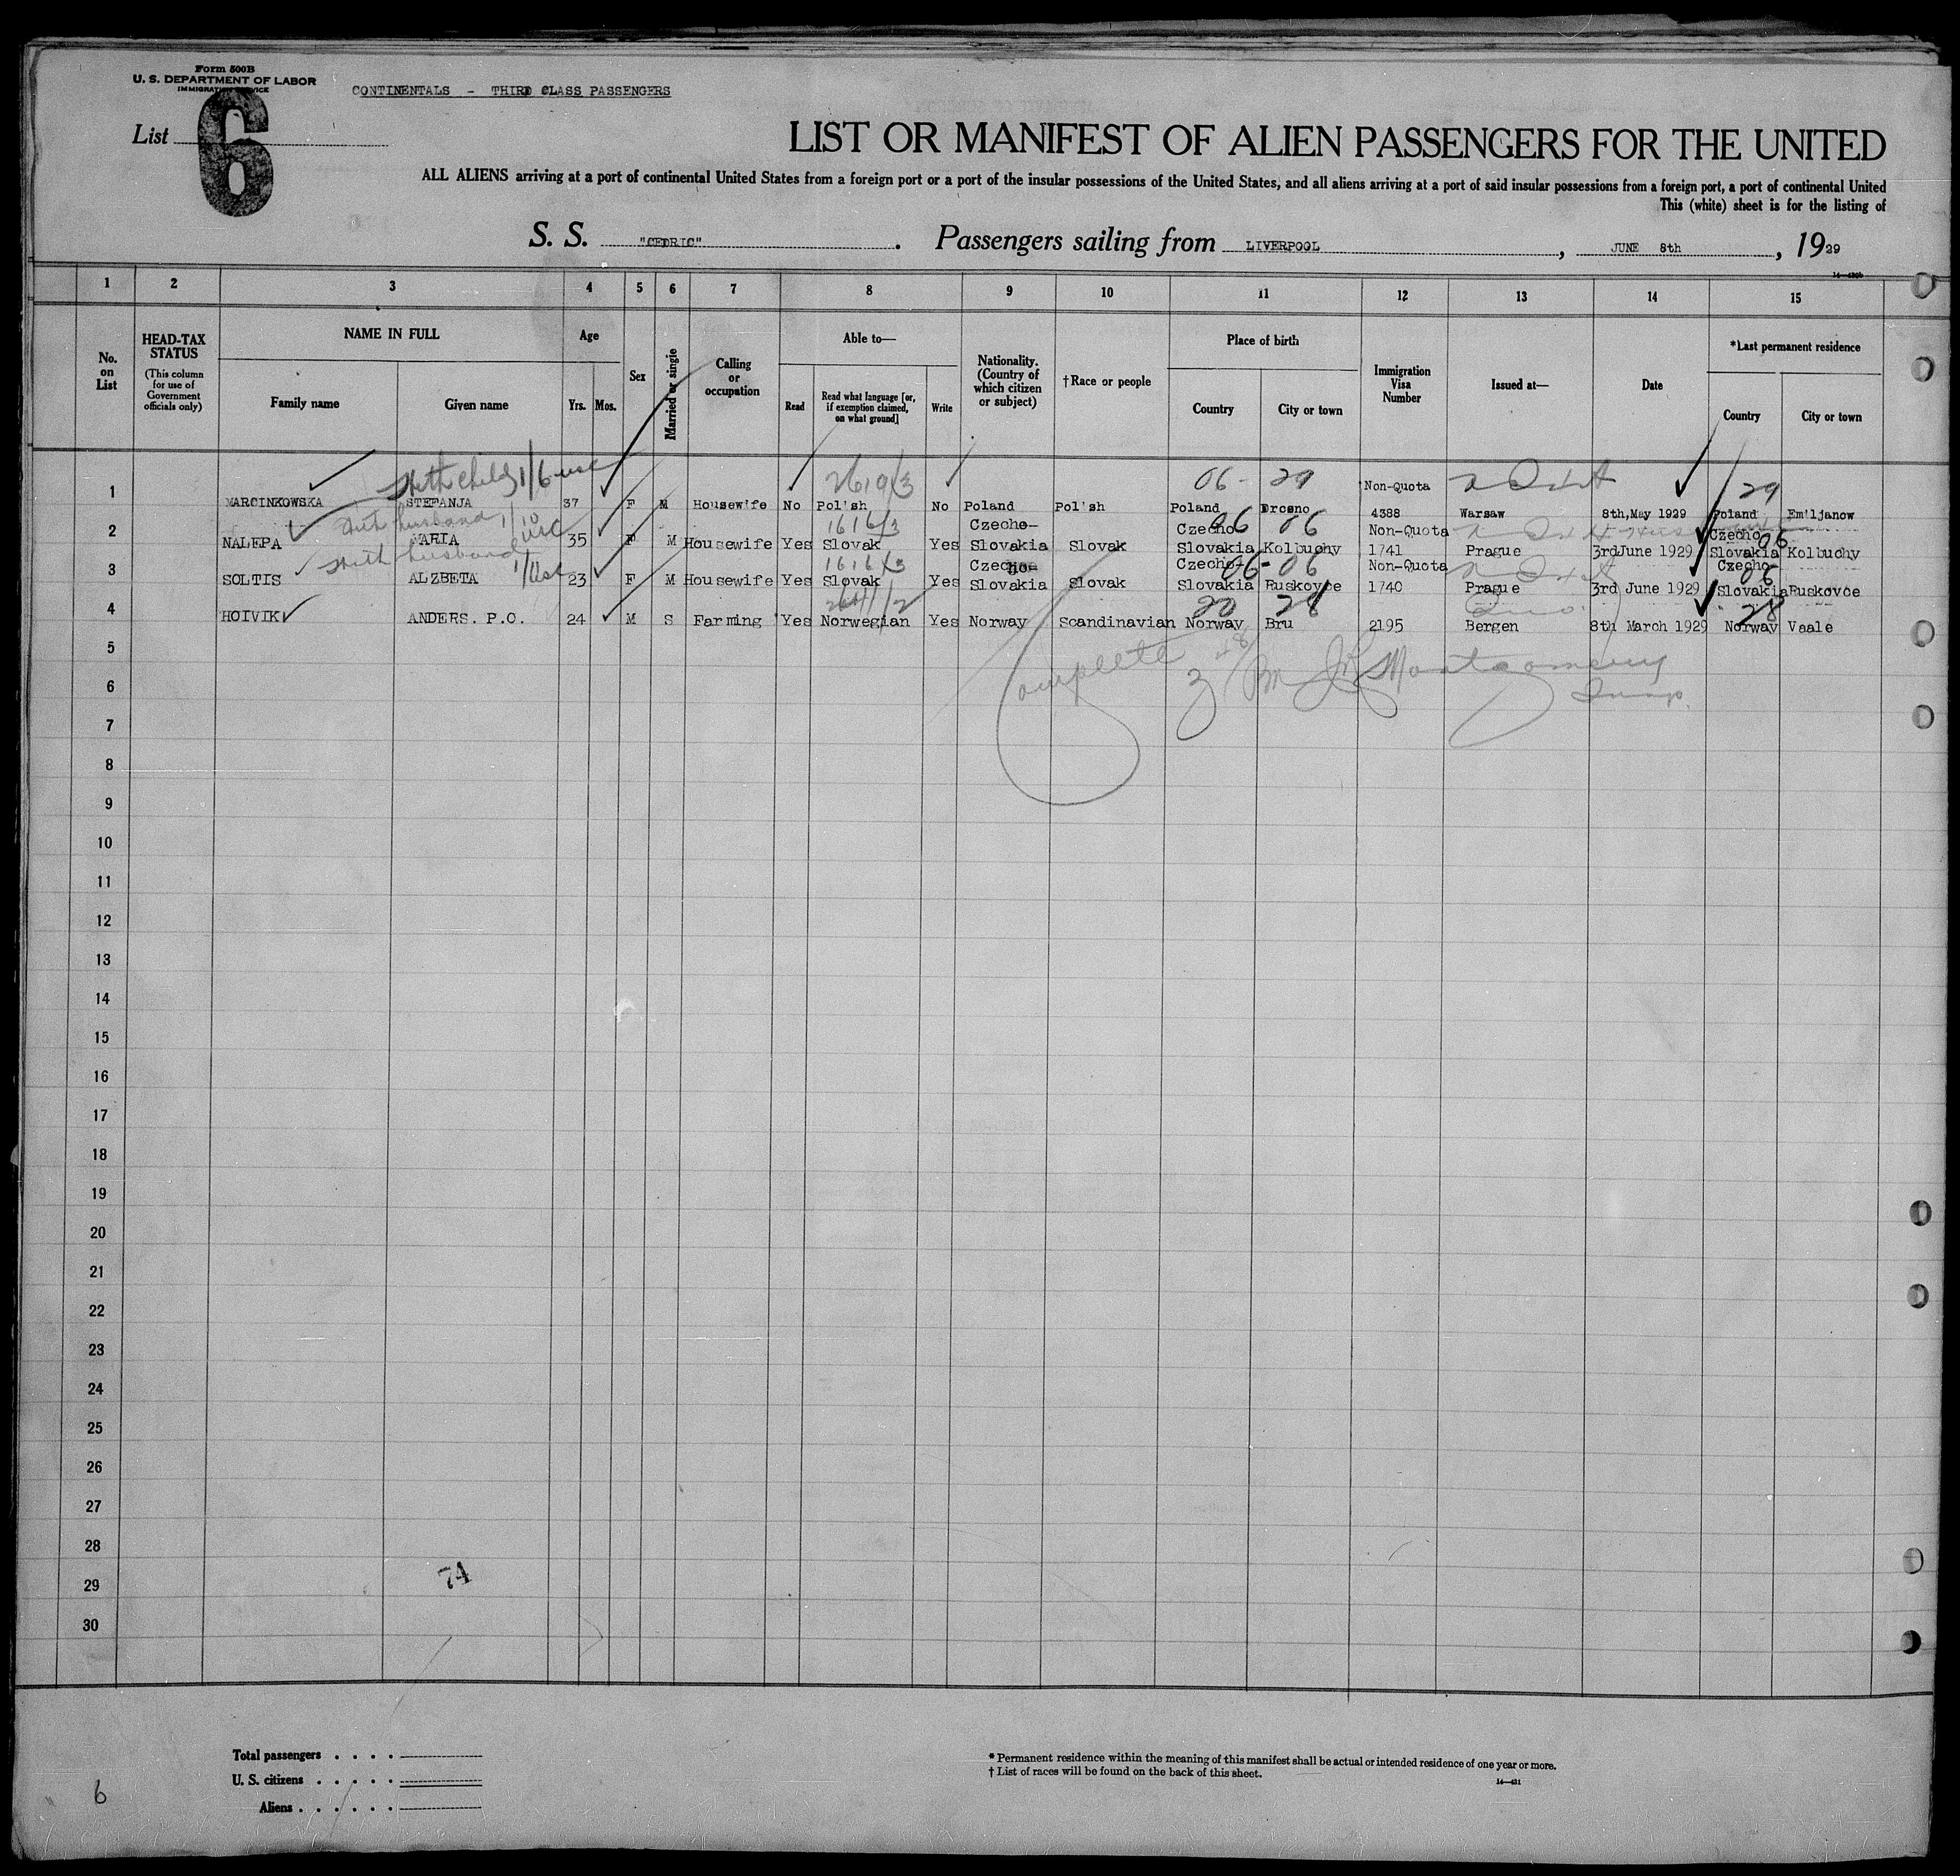 Form 500B
U. S. DEPARTMENT OF LABOR
IMMIGRATION SERVICE
CONTINENTALS - THIRD CLASS PASSENGERS
List 6
LIST OR MANIFEST OF ALIEN PASSENGERS FOR THE UNITED
ALL ALIENS arriving at a port of continental United States from a foreign port or a port of the insular possessions of the United States, and all aliens arriving at a port of said insular possessions from a foreign port, a port of continental United
This (white) sheet is for the listing of
S. S. "CEDRIC" . Passengers sailing from LIVERPOOL , JUNE 8th , 1929
1 2 3 4 5 6 7 8 9 10 11 12 13 14 15
No. on List
HEAD-TAX STATUS
(This column for use of Government officials only)
NAME IN FULL
Family name Given name
Age
Yrs. Mos.
Sex
Married or single
Calling or occupation
Able to—
Read
Read what language [or, if exemption claimed, on what ground]
Write
Nationality. (Country of which citizen or subject)
†Race or people
Place of birth
Country City or town
Immigration Visa Number
Issued at—
Date
*Last permanent residence
Country City or town
06 - 29 29
1 MARCINKOWSKA STEFANJA 37 F M Housewife No Pol'sh No Poland Pol'sh Poland Drosno Non-Quota 4388 Warsaw 8th,May 1929 Poland Emiljanow
with husband 1/10 USC 1616/3 06 06 06
2 NALEPA MARIA 35 F M Housewife Yes Slovak Yes Czecho-Slovakia Slovak Czecho-Slovakia Kolbuchy Non-Quota 1741 Prague 3rdJune 1929 Czecho-Slovakia Kolbuchy
with husband 1616/3 06-06 06
3 SOLTIS ALZBETA 23 F M Housewife Yes Slovak Yes Czecho-Slovakia Slovak Czecho-Slovakia Ruskovce Non-Quota 1740 Prague 3rd June 1929 Czecho-Slovakia Ruskovce
20 28 28
4 HOIVIK ANDERS. P.O. 24 M S Farming Yes Norwegian Yes Norway Scandinavian Norway Bru 2195 Bergen 8th March 1929 Norway Vaale
5
Complete Montgomery
6
Insp.
7
8
9
10
11
12
13
14
15
16
17
18
19
20
21
22
23
24
25
26
27
28
74
29
30
Total passengers
U. S. citizens
Aliens
* Permanent residence within the meaning of this manifest shall be actual or intended residence of one year or more.
† List of races will be found on the back of this sheet.
14—431
6